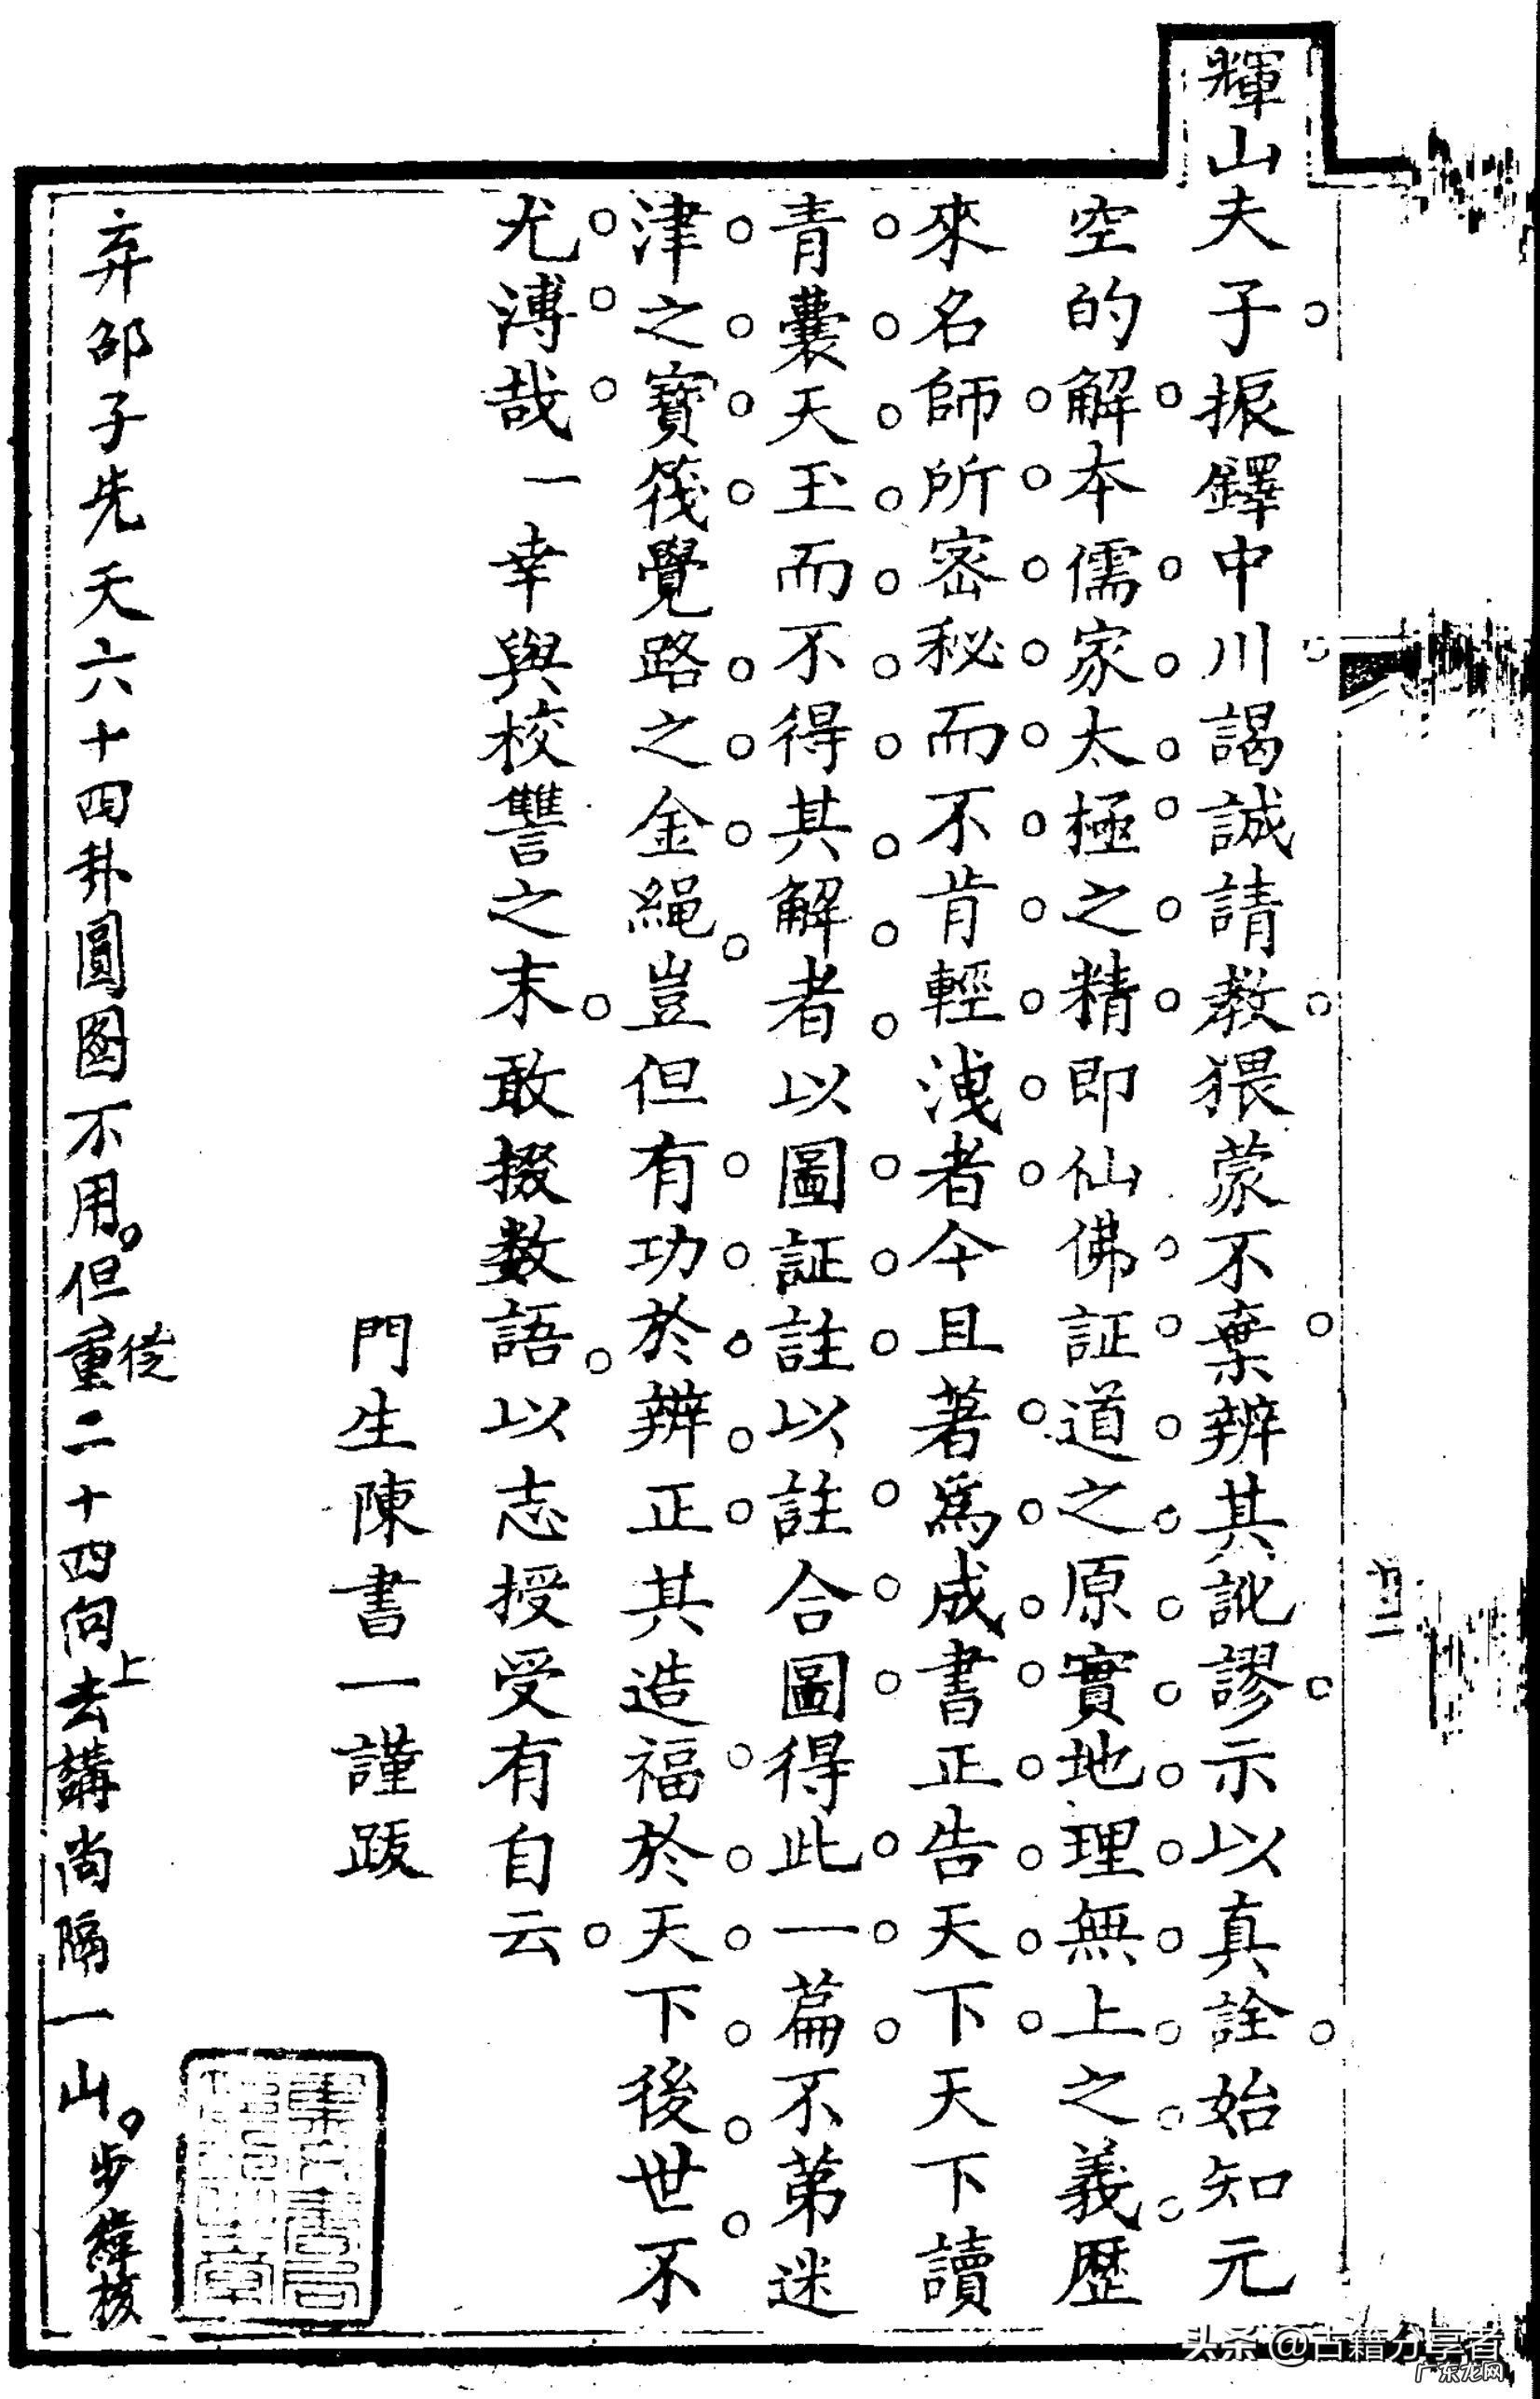 輝山夫子振鐸中川謁誠請教猥蒙不棄辨其訛謬示以真詮始知元
空的解本儒家太極之精即仙佛証道之原實地理無上之義歷
來名師所密秘而不肯輕洩者今且著爲成書正告天下天下讀
青囊天玉而不得其解者以圖証註以註合圖得此一篇不第迷
津之寶筏覺路之金繩豈但有功於辨正其造福於天下後世不
尤溥哉一幸與校讐之末敢掇數語以志授受有自云
門生陳書一謹跋
弃邵子先天六十四卦圓图不用。但從重二十四向上去講尚隔一山。步緯核
头条 @古籍分享者
广东龙网